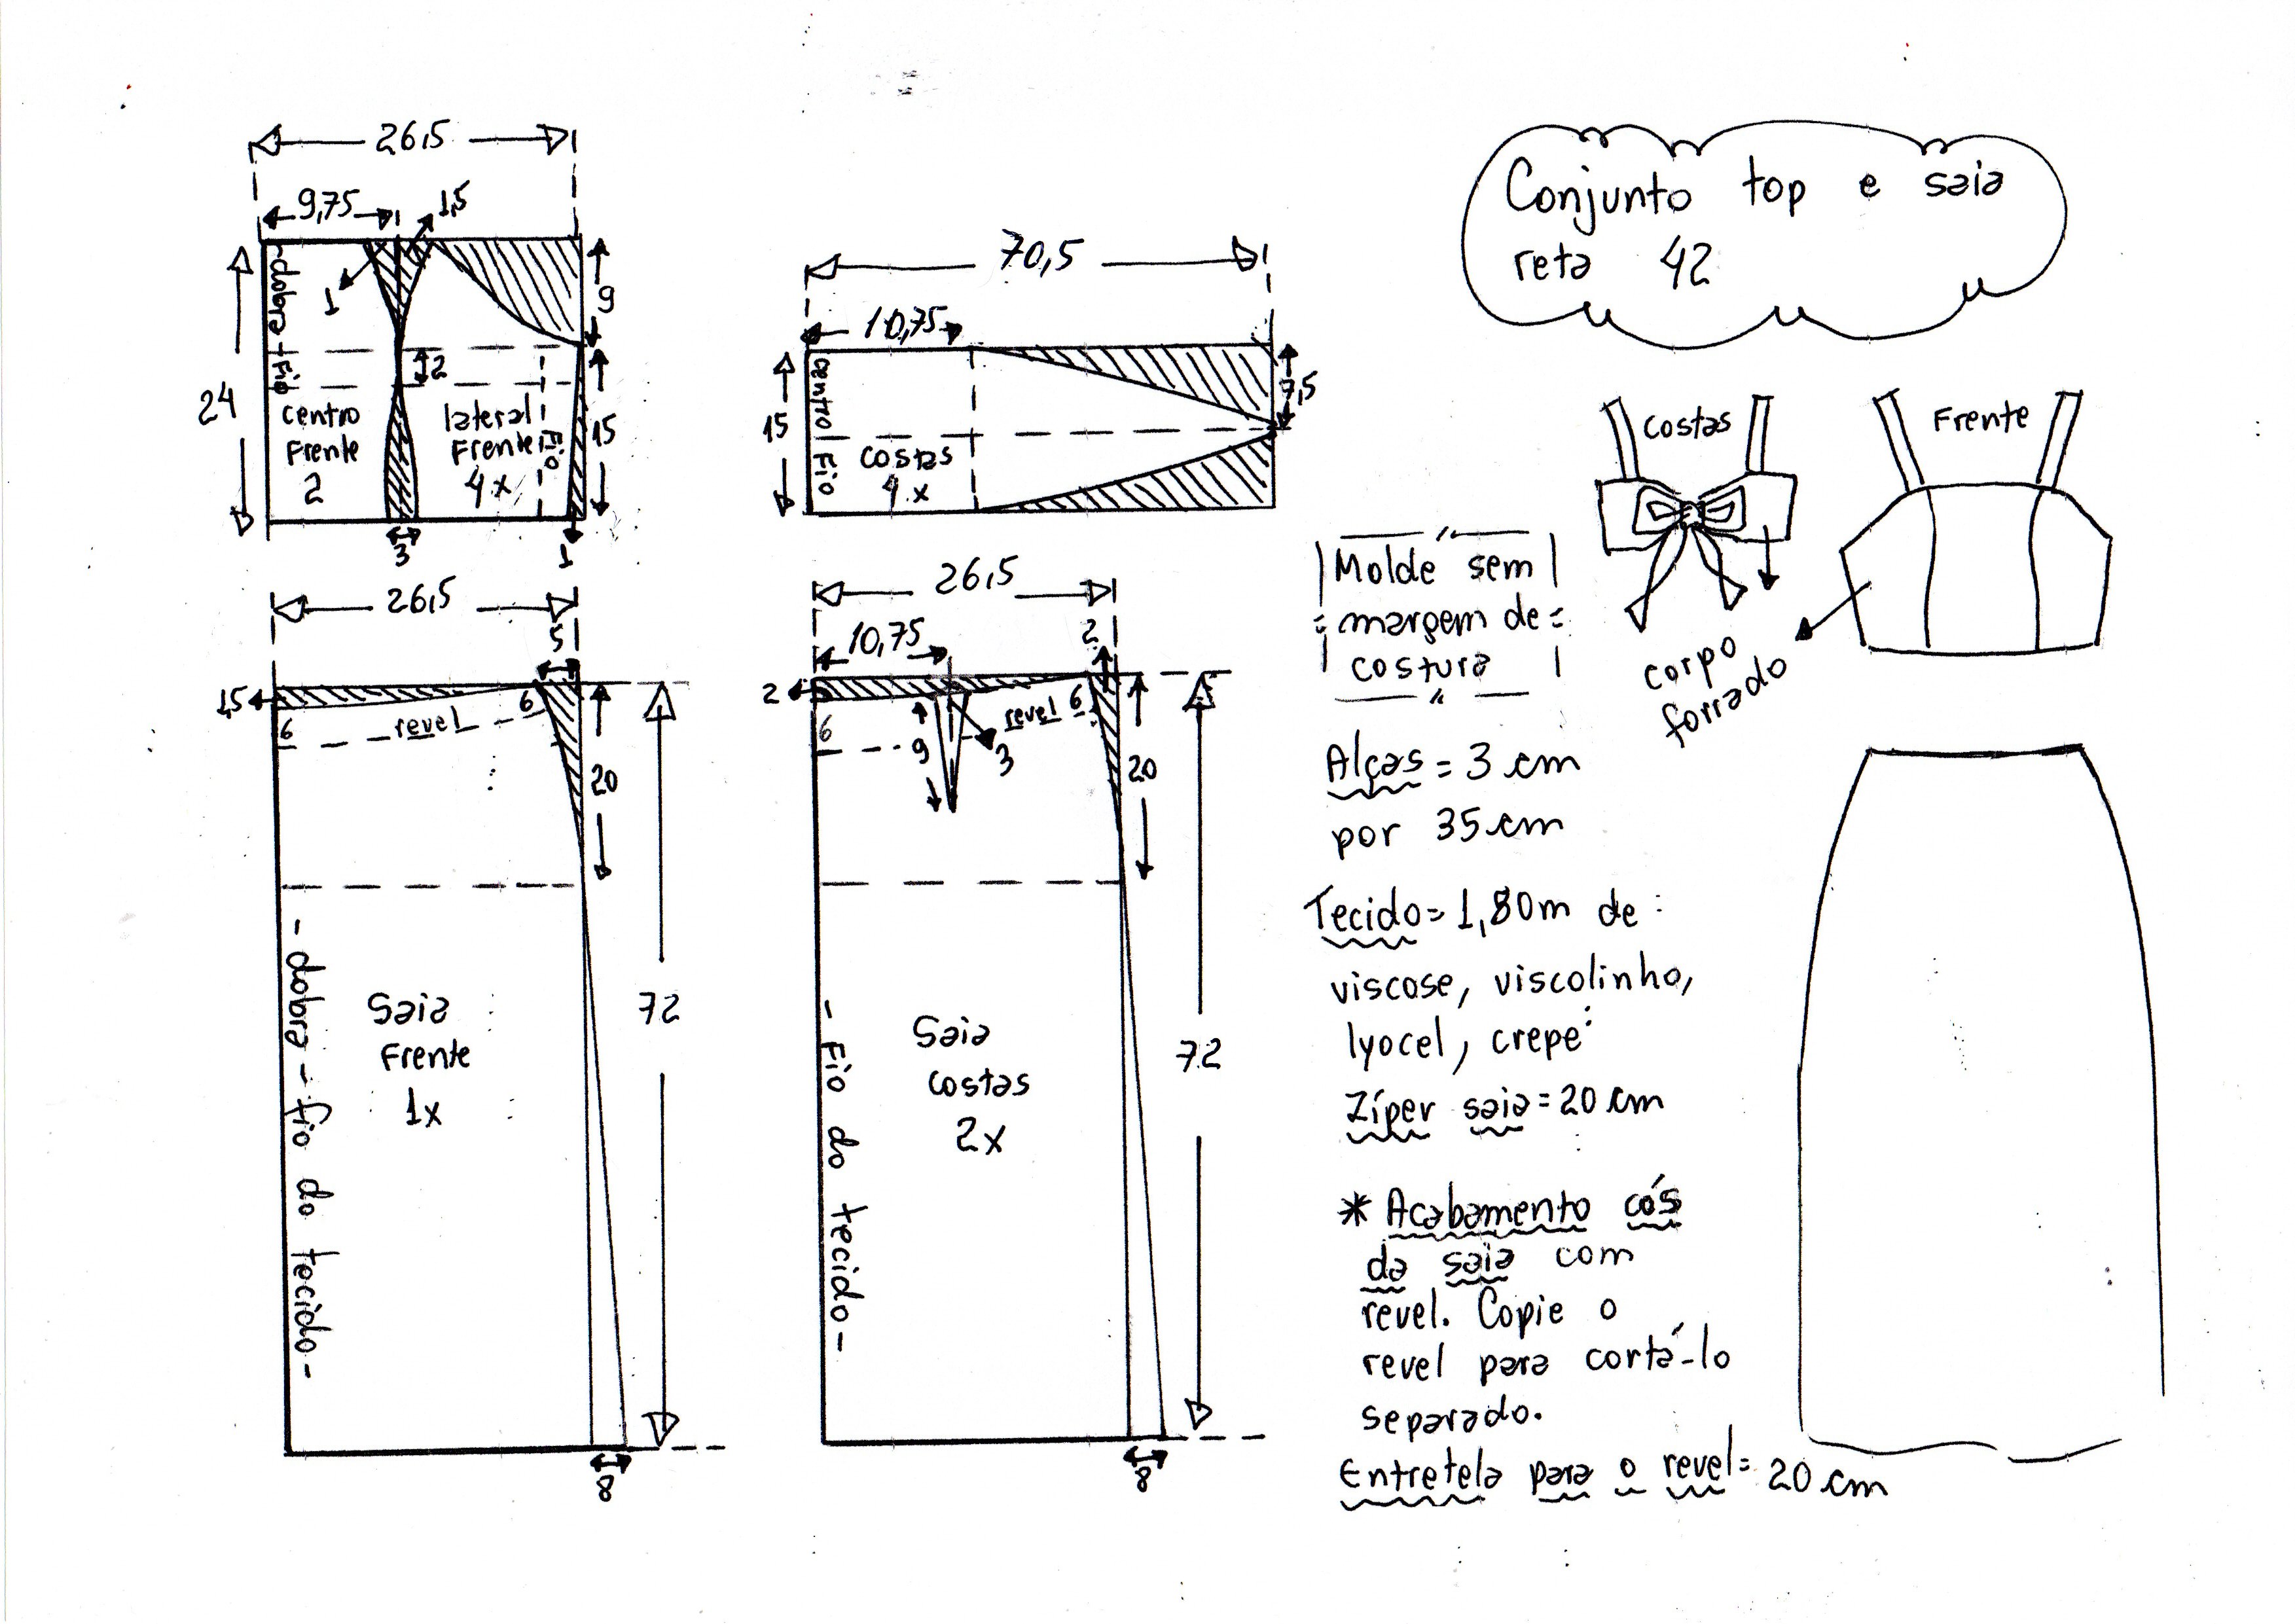 26,5
9,75
1,5
1
dobra - fio
9
24
2
centro
Frente
2
lateral
Frente
4x
Fio
15
3
1
70,5
10,75
7,5
15
centro Fio
costas
4x
Conjunto top e saia
reta 42
costas
Frente
corpo
forrado
26,5
5
1,5
6
6
revel
20
72
- dobra - fio do tecido -
Saia
Frente
1x
8
26,5
10,75
2
2
6
6
revel
9
3
20
72
- Fio do tecido -
Saia
costas
2x
8
Molde sem
margem de
costura
Alças = 3 cm
por 35 cm
Tecido = 1,80m de
viscose, viscolinho,
lyocel, crepe
Zíper saia = 20 cm
* Acabamento cós
da saia com
revel. Copie o
revel para cortá-lo
separado.
Entretela para o revel = 20 cm